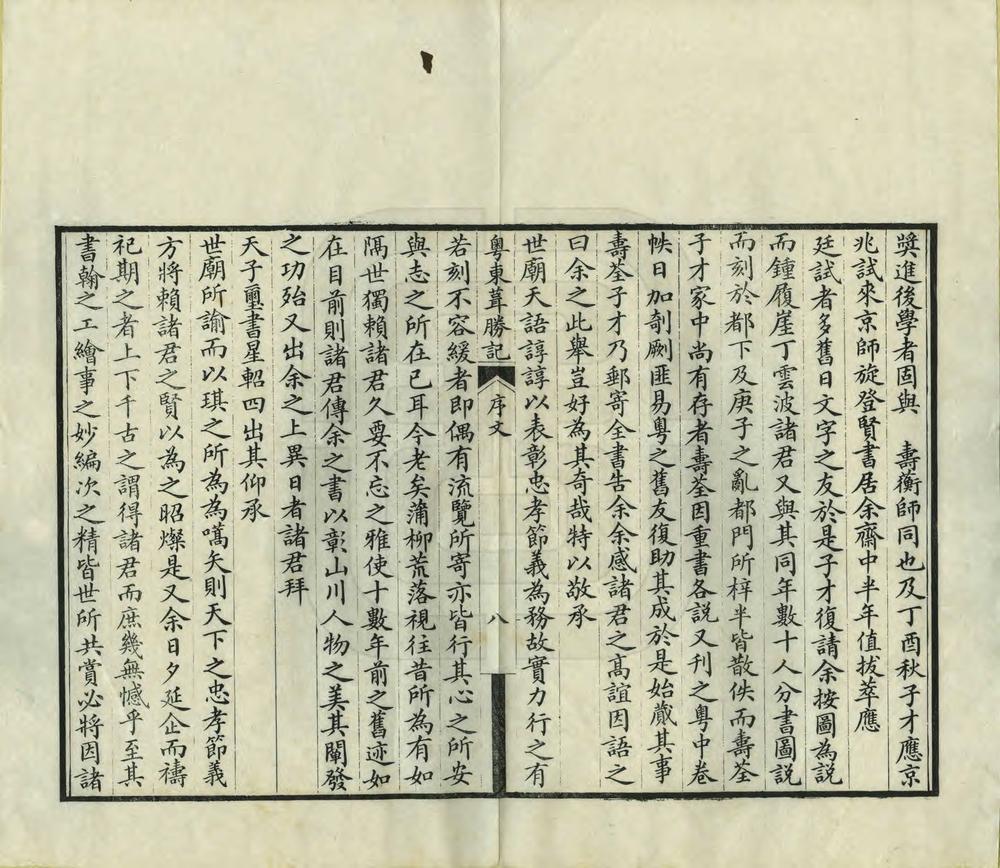 獎進後學者固與 壽衡師同也及丁酉秋子才應京
兆試來京師旋登賢書居余齋中半年值拔萃應
廷試者多舊日文字之友於是子才復請余按圖為說
而鍾履崖丁雲波諸君又與其同年數十人分書圖說
而刻於都下及庚子之亂都門所梓半皆散佚而壽荃
子才家中尚有存者壽荃因重書各說又刊之粵中卷
帙日加剞劂匪易粵之舊友復助其成於是始蕆其事
壽荃子才乃郵寄全書告余余感諸君之高誼因語之
曰余之此舉豈好為其奇哉特以敬承
世廟天語諄諄以表彰忠孝節義為務故實力行之有
粵東葺勝記 序文 八
若刻不容緩者即偶有流覽所寄亦皆行其心之所安
與志之所在已耳今老矣蒲柳荒落視往昔所為有如
隔世獨賴諸君久要不忘之雅使十數年前之舊迹如
在目前則諸君傳余之書以彰山川人物之美其闡發
之功殆又出余之上異日者諸君拜
天子璽書星軺四出其仰承
世廟所諭而以琪之所為為嚆矢則天下之忠孝節義
方將賴諸君之賢以為之昭燦是又余日夕延企而禱
祀期之者上下千古之謂得諸君而庶幾無憾乎至其
書翰之工繪事之妙編次之精皆世所共賞必將因諸